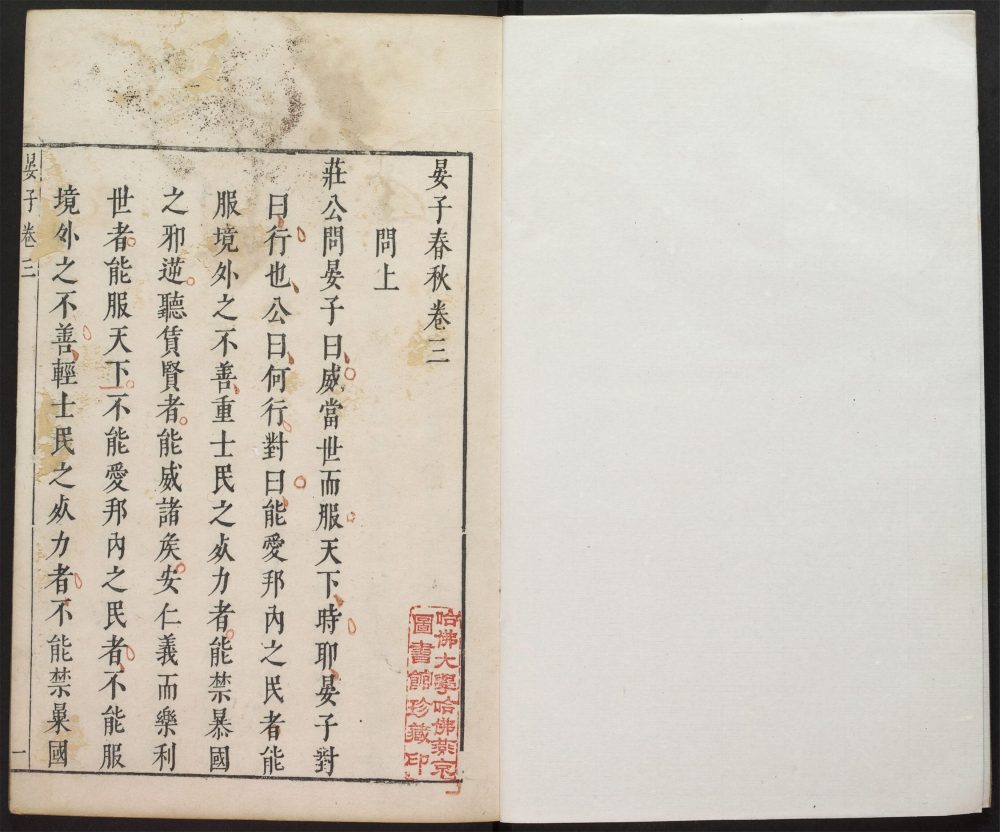 晏子春秋卷三
問上
莊公問晏子曰威當世而服天下時耶晏子對
曰行也公曰何行對曰能愛邦內之民者能
服境外之不善重士民之死力者能禁暴國
之邪逆聽賃賢者能威諸矦安仁義而樂利
世者能服天下不能愛邦內之民者不能服
境外之不善輕士民之死力者不能禁暴國
晏子卷三
一
哈佛大學哈佛燕京
圖書館珍藏印